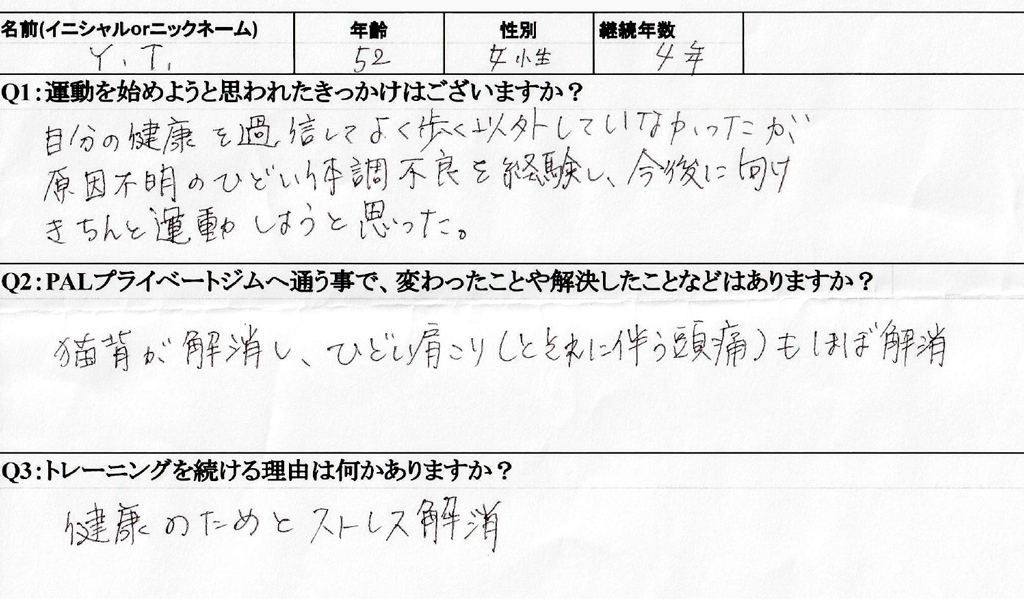 名前(イニシャルorニックネーム) 年齢 性別 継続年数
Y.T. 52 女性 4年
Q1:運動を始めようと思われたきっかけはございますか？
自分の健康を過信してよく歩く以外していなかったが、
原因不明のひどい体調不良を経験し、今後に向け
きちんと運動しようと思った。
Q2:PALプライベートジムへ通う事で、変わったことや解決したことなどはありますか？
猫背が解消し、ひどい肩こり(とそれに伴う頭痛)もほぼ解消
Q3:トレーニングを続ける理由は何かありますか？
健康のためとストレス解消